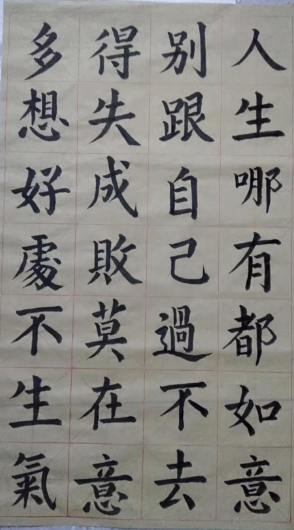 人生哪有都如意
别跟自己過不去
得失成敗莫在意
多想好處不生氣